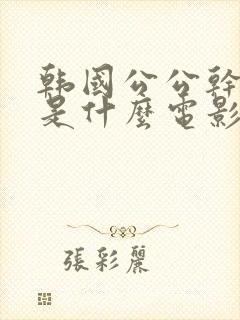 韩國公公幹
是什麼電影
張彩麗